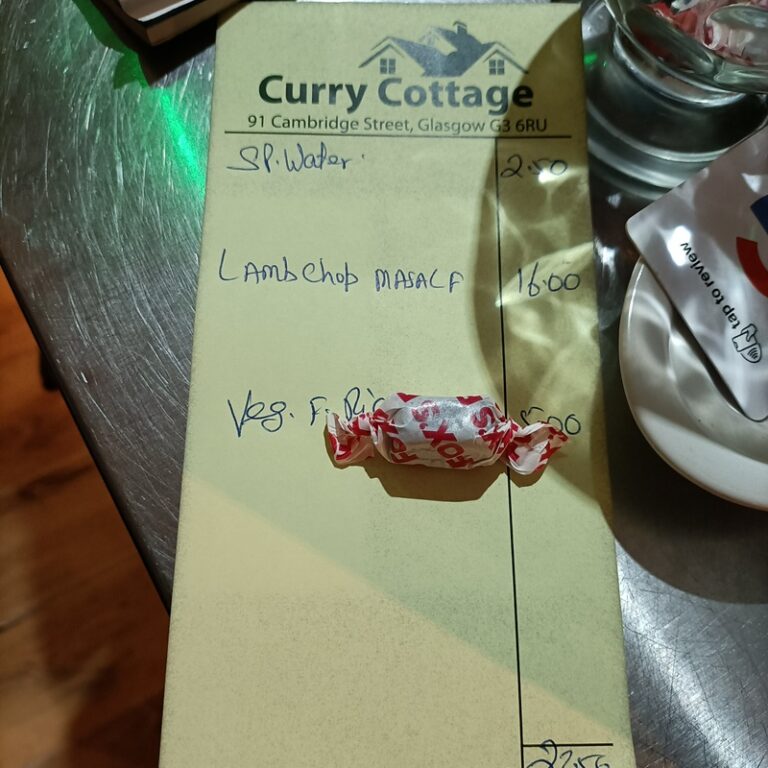 Curry Cottage
91 Cambridge Street, Glasgow G3 6RU
SP. Water. 2.50
Lamb Chop MASALA 16.00
Veg. F. Ric 5.00
FOX'S
tap to review